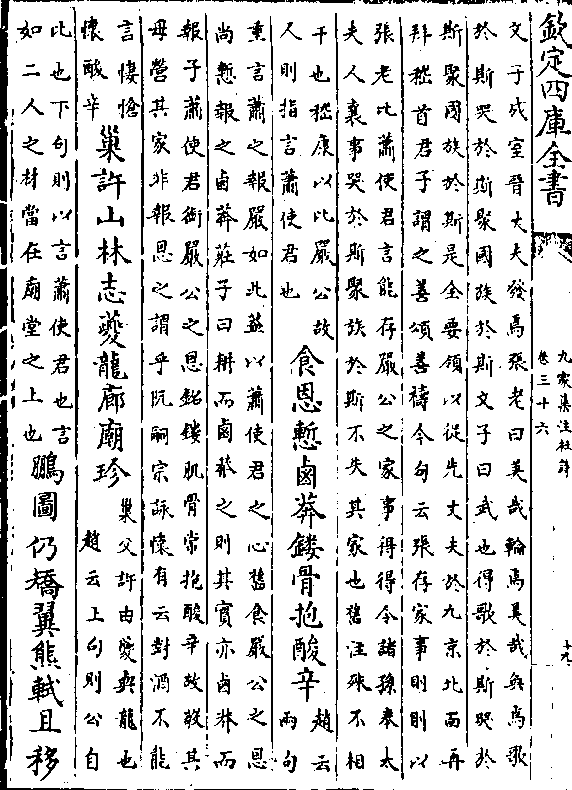 欽定四庫全書
九家集注杜詩
卷三十六
十九
文子成室晉大夫發焉張老曰美哉輪焉美哉奐焉歌
於斯哭於斯聚國族於斯文子曰武也得歌於斯哭於
斯聚國族於斯是全要領以從先大夫於九京北面再
拜稽首君子謂之善頌善禱今句云張存家事則則以
張老比蕭使君言能存嚴公之家事得得令諸孫奉太
夫人襄事哭於斯聚族於斯不失其家也舊注殊不相
干也嵇康以比嚴公故
人則指言蕭使君也
食恩慙鹵莽鏤骨抱酸辛
趙云
兩句
重言蕭之報嚴如此蓋以蕭使君之心舊食嚴公之恩
尚慙報之鹵莽莊子曰耕而鹵莽之則其實亦鹵莽而
報予蕭使君銜嚴公之恩銘鏤肌骨常抱酸辛故其
母營其家非報恩之謂乎阮嗣宗詠懷有云對酒不能
言悽愴
懷酸辛
巢許山林志夔龍廊廟珍
巢父許由夔與龍也
趙云上句則公自
此也下句則以言蕭使君也言
如二人之材當在廟堂之上也
鵬圖仍矯翼熊軾且移